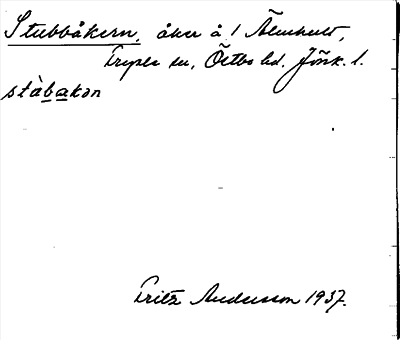 Stubbåkern, åker å 1 Älmhult,
Tryde sn, Östbo hd. Jönk. l.
stàbakən
Fritz Andersson 1937.